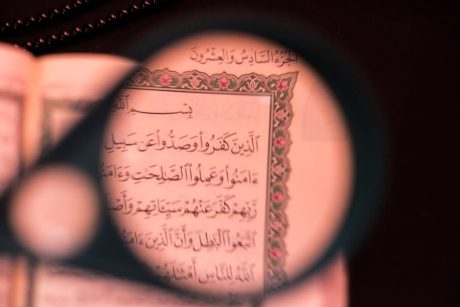 الجُزءُ السَّادِسُ وَالعِشْرُونَ
بِسْمِ اللَّهِ
ٱلَّذِينَ كَفَرُوا۟ وَصَدُّوا۟ عَن سَبِيلِ
ءَامَنُوا۟ وَعَمِلُوا۟ ٱلصَّٰلِحَٰتِ وَءَامَنُ
رَّبِّهِمْ كَفَّرَ عَنْهُمْ سَيِّـَٔاتِهِمْ وَأَصْلَ
ٱتَّبَعُوا۟ ٱلْبَٰطِلَ وَأَنَّ ٱلَّذِينَ ءَامَنُ
ٱللَّهُ لِلنَّاسِ أَمْثَٰلَهُ